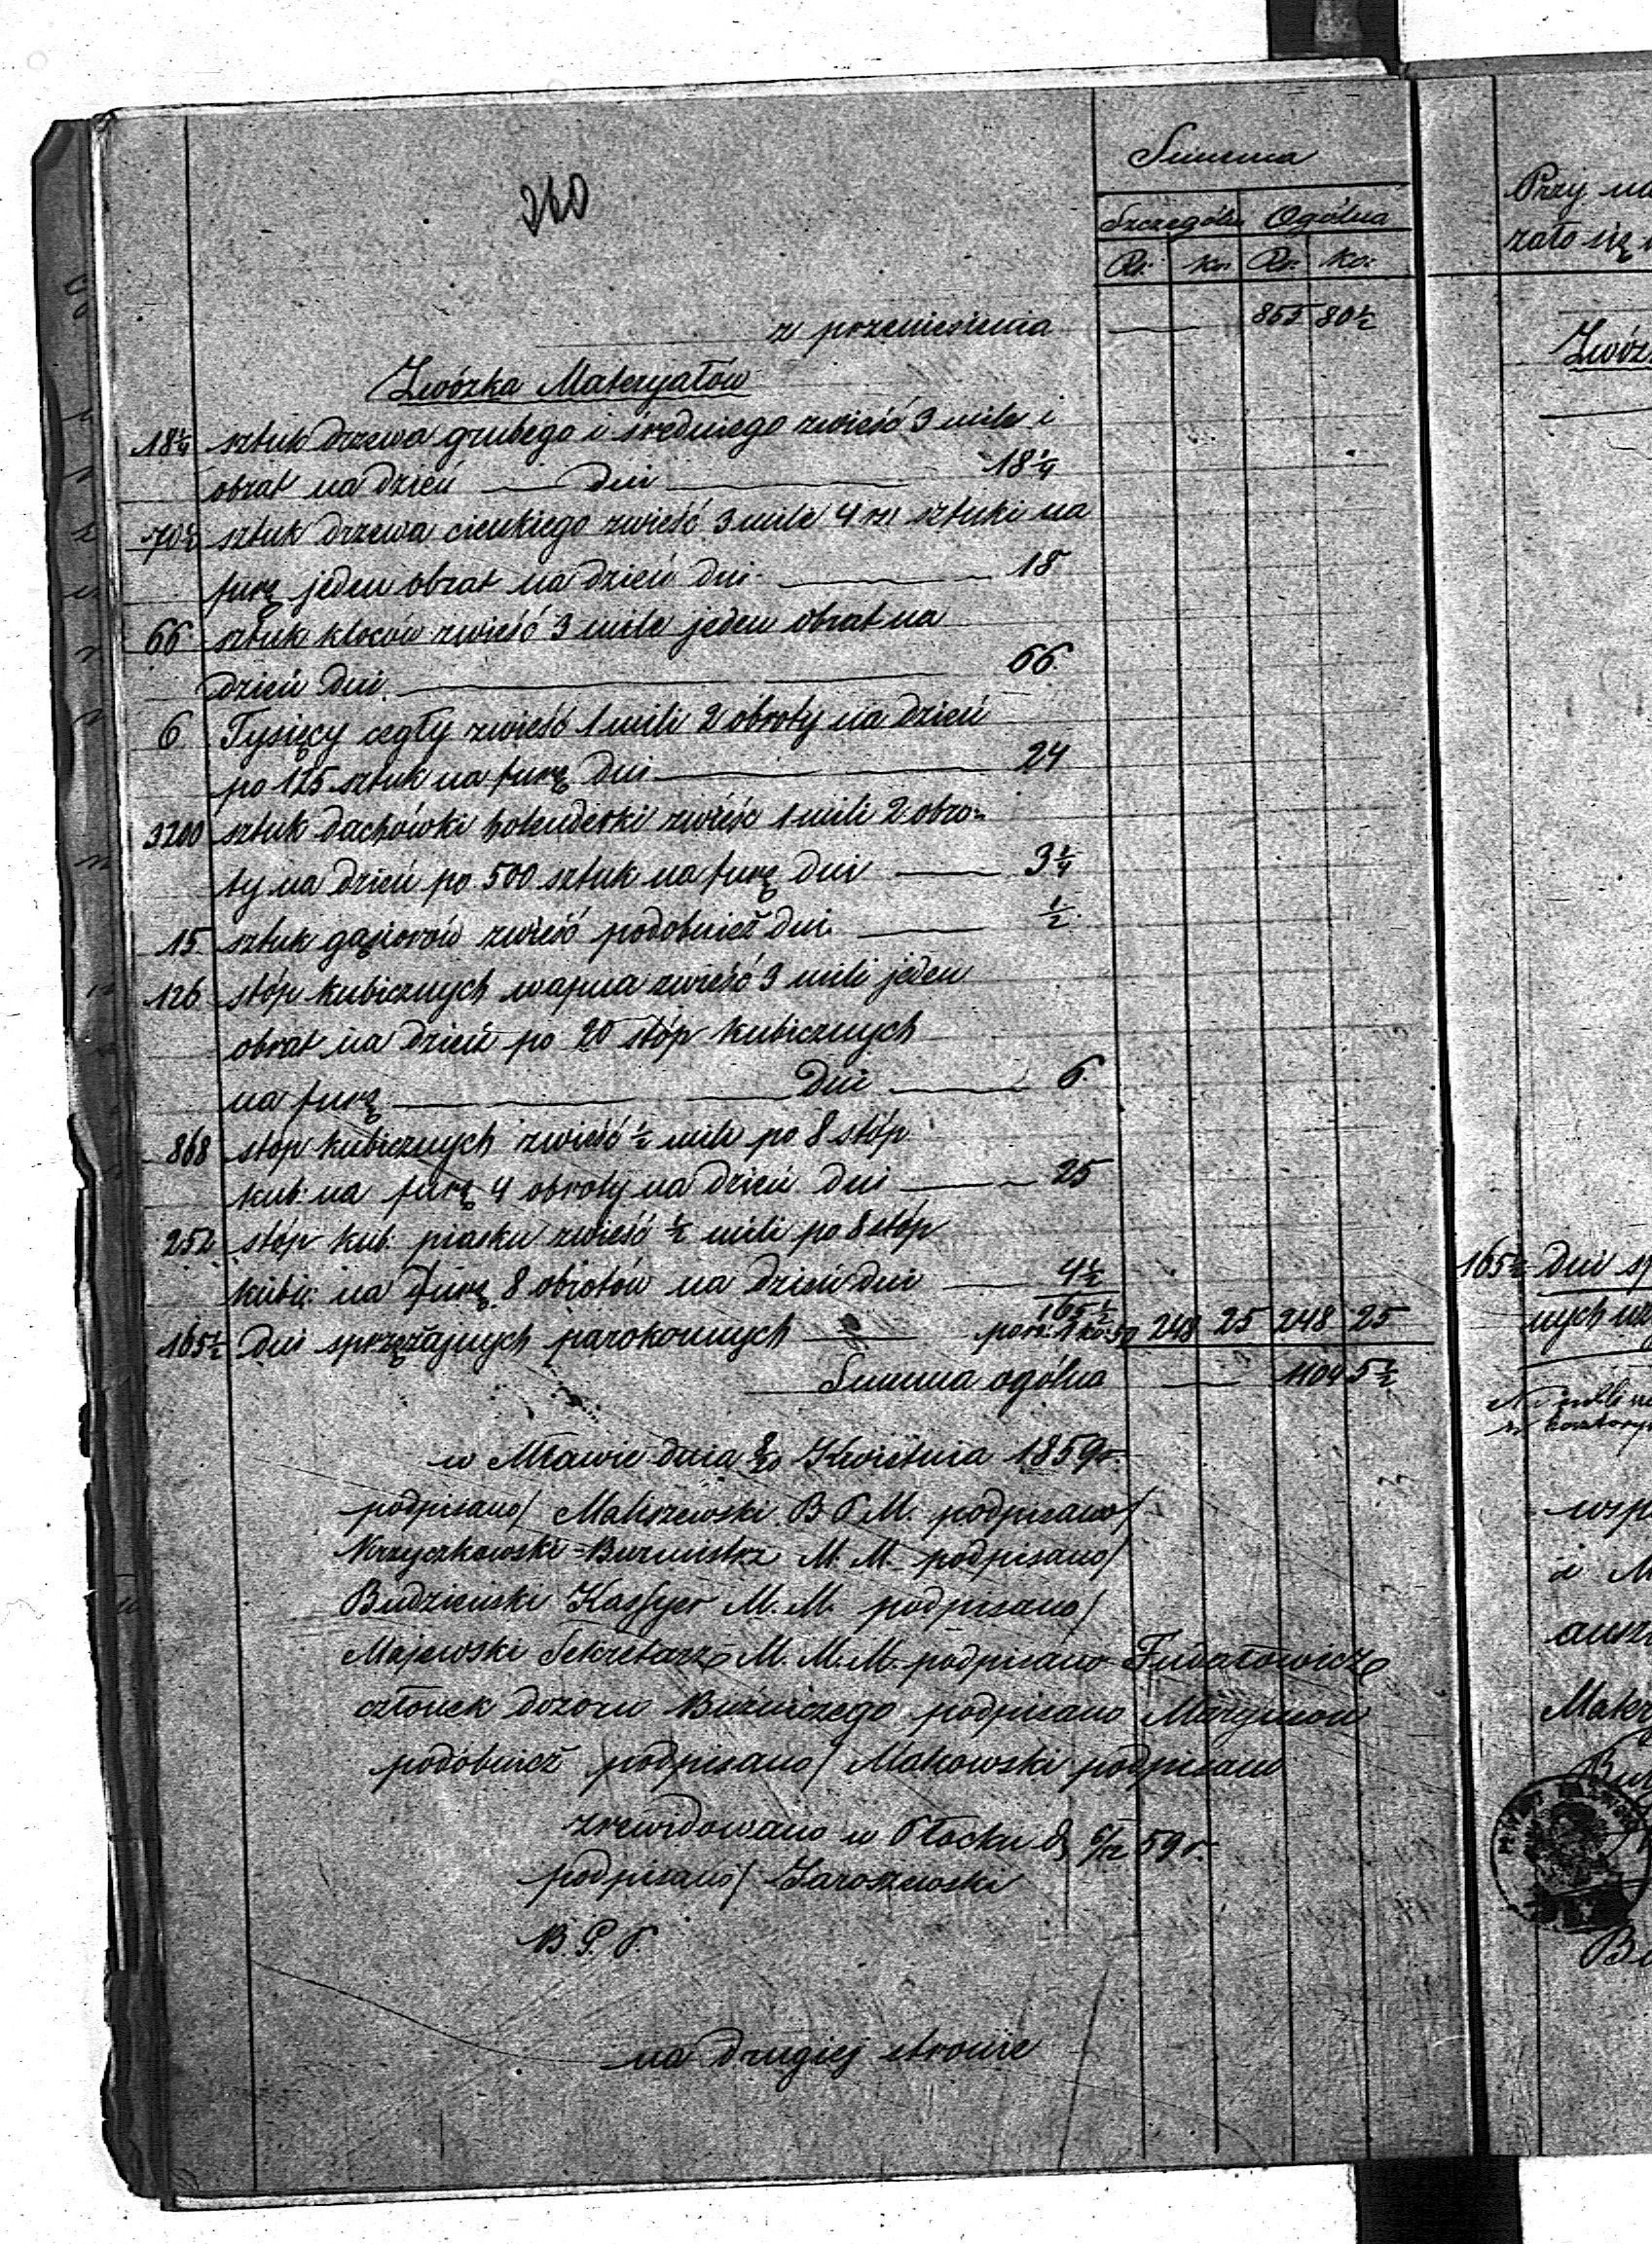 260
Summa
Szczególn Ogólna
Rs. ko. Rs. ko.
z przeniesienia 855 80½
Zwózka Materyałów
18¼ sztuk drzewa grubego i średniego zwieść 3 mile i
obrat na dzień dni 18¼
70½ sztuk drzewa cienkiego zwieść 3 mile 4ry sztuki na
furę jeden obrat na dzień dni 18
66 sztuk kloców zwieść 3 mile jeden obrat na
dzień dni 66
6 Tysięcy cegły zwieść 1 mili 2 obroty na dzień
po 125 sztuk na furę dni 24
3200 sztuk dachówki holenderki zwieść 1 mili 2 obro-
ty na dzień po 500 sztuk na furę dni 3¼
15 sztuk gąsiorów zwieść podobnież dni ½
126 stóp kubicznych wapna zwieść 3 mili jeden
obrat na dzień po 20 stóp kubicznych
na furę dni 6
868 stop kubicznych zwieść ½ mili po 8 stóp
kub: na furę 4 obroty na dzień dni 25
252 stóp kub: piasku zwieść ½ mili po 8 stóp
kubic: na furę 8 obrotów na dzień dni 4½
165½
165½ dni sprzężajnych parokonnych po rs: 1 ko: 50 248 25 248 25
Summa ogólna 1104 5½
w Mławie dnia 8/20 Kwietnia 1859 r.
podpisano/ Maliszewski B P. M. podpisano/
Krzyczkowski Burmistrz M. M. podpisano/
Budzieński Kassyer M. M. podpisano/
Majewski Sekretarz M. M. M. podpisano
członek dozoru Bużniczego podpisano
podobnież podpisano/ Makowski podpisano
zrewidowano w Płocku d 6/12 59 r.
podpisano/ Jaroszewski
B. G. P.
na drugiej stronie
Przy
zało się
Zwóz
165½ dni sp
nych
wsp
i M
Mater
Bu